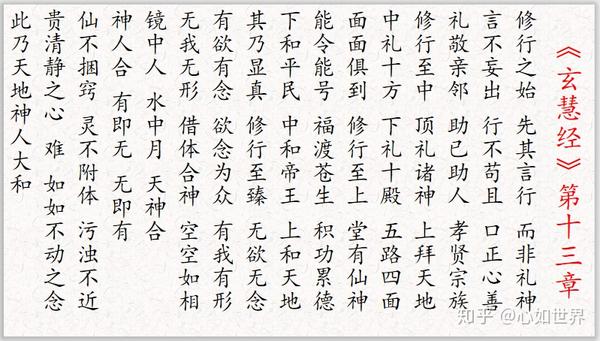 《玄慧经》第十三章
修行之始 先其言行 而非礼神
言不妄出 行不苟且 口正心善
礼敬亲邻 助已助人 孝贤宗族
修行至中 顶礼诸神 上拜天地
中礼十方 下礼十殿 五路四面
面面俱到 修行至上 堂有仙神
能令能号 福渡苍生 积功累德
下和平民 中和帝王 上和天地
其乃显真 修行至臻 无欲无念
有欲有念 欲念为众 有我有形
无我无形 借体合神 空空如相
镜中人 水中月 天神合
神人合 有即无 无即有
仙不捆窍 灵不附体 污浊不近
贵清静之心 难 如如不动之念
此乃天地神人大和
知乎 @心如世界